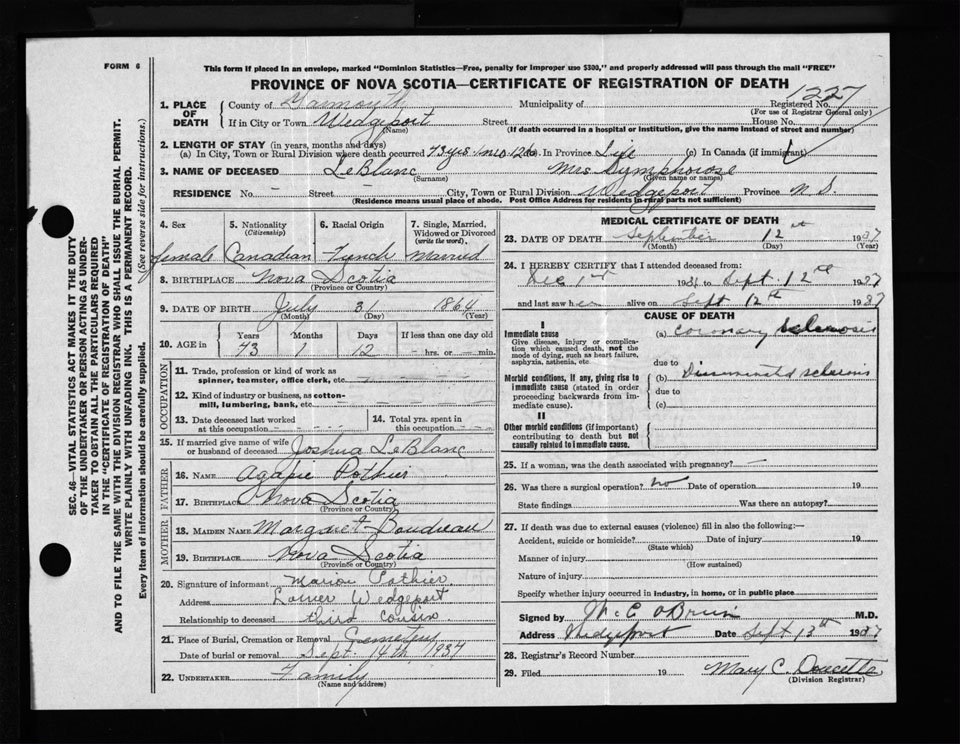 FORM 6
This form if placed in an envelope, marked "Dominion Statistics—Free, penalty for improper use $300," and properly addressed will pass through the mail "FREE"
PROVINCE OF NOVA SCOTIA—CERTIFICATE OF REGISTRATION OF DEATH
1227
1. PLACE OF DEATH
County of Yarmouth Municipality of Registered No.
(For use of Registrar General only)
If in City or Town Wedgeport Street House No.
(Name) (If death occurred in a hospital or institution, give the name instead of street and number)
2. LENGTH OF STAY (in years, months and days)
(a) In City, Town or Rural Division where death occurred 73 yrs 1 mo 12 da. In Province Life (c) In Canada (if immigrant)
3. NAME OF DECEASED LeBlanc Mrs Symphorose
(Surname) (Given name or names)
RESIDENCE No. - Street - City, Town or Rural Division Wedgeport Province N.S.
(Residence means usual place of abode. Post Office Address for residents in rural parts not sufficient)
4. Sex 5. Nationality (Citizenship) 6. Racial Origin 7. Single, Married, Widowed or Divorced (write the word)
female Canadian French Married
8. BIRTHPLACE Nova Scotia
(Province or Country)
9. DATE OF BIRTH July 3 1864
(Month) (Day) (Year)
10. AGE in Years Months Days If less than one day old
73 1 12 - hrs. or - min.
OCCUPATION
11. Trade, profession or kind of work as spinner, teamster, office clerk, etc.
12. Kind of industry or business, as cotton-mill, lumbering, bank, etc.
13. Date deceased last worked at this occupation
14. Total yrs. spent in this occupation
15. If married give name of wife or husband of deceased Joshua LeBlanc
FATHER
16. NAME Agapie Pothier
17. BIRTHPLACE Nova Scotia
(Province or Country)
MOTHER
18. MAIDEN NAME Margaret Boudreau
19. BIRTHPLACE Nova Scotia
(Province or Country)
20. Signature of informant Marion Pothier
Address Lower Wedgeport
Relationship to deceased third cousin
21. Place of Burial, Cremation or Removal Cemetery
Date of burial or removal Sept. 14th, 1937
22. UNDERTAKER Family
(Name and address)
MEDICAL CERTIFICATE OF DEATH
23. DATE OF DEATH September 12th 1937
(Month) (Day) (Year)
24. I HEREBY CERTIFY that I attended deceased from:
Dec 1st 1936 to Sept. 12th 1937
and last saw her alive on Sept 12th 1937
CAUSE OF DEATH
I
Immediate cause
Give disease, injury or complication which caused death, not the mode of dying, such as heart failure, asphyxia, asthenia, etc.
(a) Coronary sclerosis
due to
Morbid conditions, if any, giving rise to immediate cause (stated in order proceeding backwards from immediate cause).
(b) Disseminated sclerosis
due to
(c)
II
Other morbid conditions (if important) contributing to death but not causally related to immediate cause.
25. If a woman, was the death associated with pregnancy? —
26. Was there a surgical operation? no Date of operation 19
State findings Was there an autopsy?
27. If death was due to external causes (violence) fill in also the following:—
Accident, suicide or homicide? Date of injury 19
(State which)
Manner of injury
(How sustained)
Nature of injury
Specify whether injury occurred in industry, in home, or in public place
Signed by M. C. O'Brien M.D.
Address Wedgeport Date Sept 13th 1937
28. Registrar's Record Number
29. Filed 19 Mary C. Doucette
(Division Registrar)
SEC. 46—VITAL STATISTICS ACT MAKES IT THE DUTY
OF THE UNDERTAKER OR PERSON ACTING AS UNDER-
TAKER TO OBTAIN ALL THE PARTICULARS REQUIRED
IN THE "CERTIFICATE OF REGISTRATION OF DEATH"
AND TO FILE THE SAME WITH THE DIVISION REGISTRAR WHO SHALL ISSUE THE BURIAL PERMIT.
WRITE PLAINLY WITH UNFADING INK. THIS IS A PERMANENT RECORD.
Every item of information should be carefully supplied. (See reverse side for instructions.)